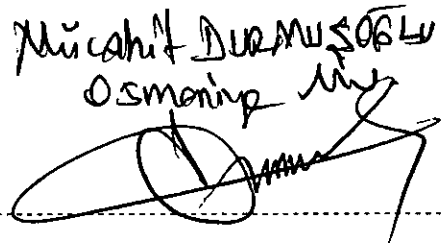 Mücahit DURMUŞOĞLU
Osmaniye